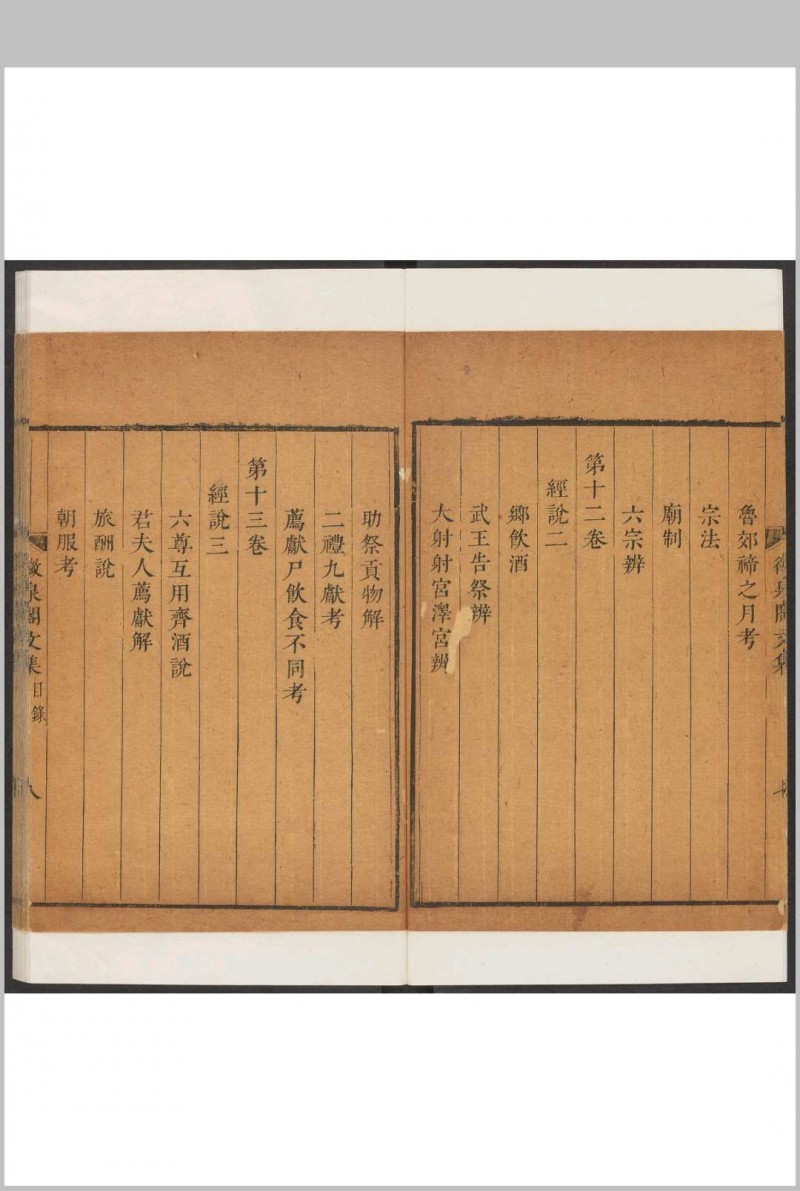 魯郊禘之月考
宗法
廟制
六宗辨
第十二卷
經說二
鄉飲酒
武王告祭辨
大射射宮澤宮辨
助祭貢物解
二禮九獻考
薦獻尸飲食不同考
第十三卷
經說三
六尊互用齊酒說
君夫人薦獻解
旅酬說
朝服考
泉閣文集 目錄 八